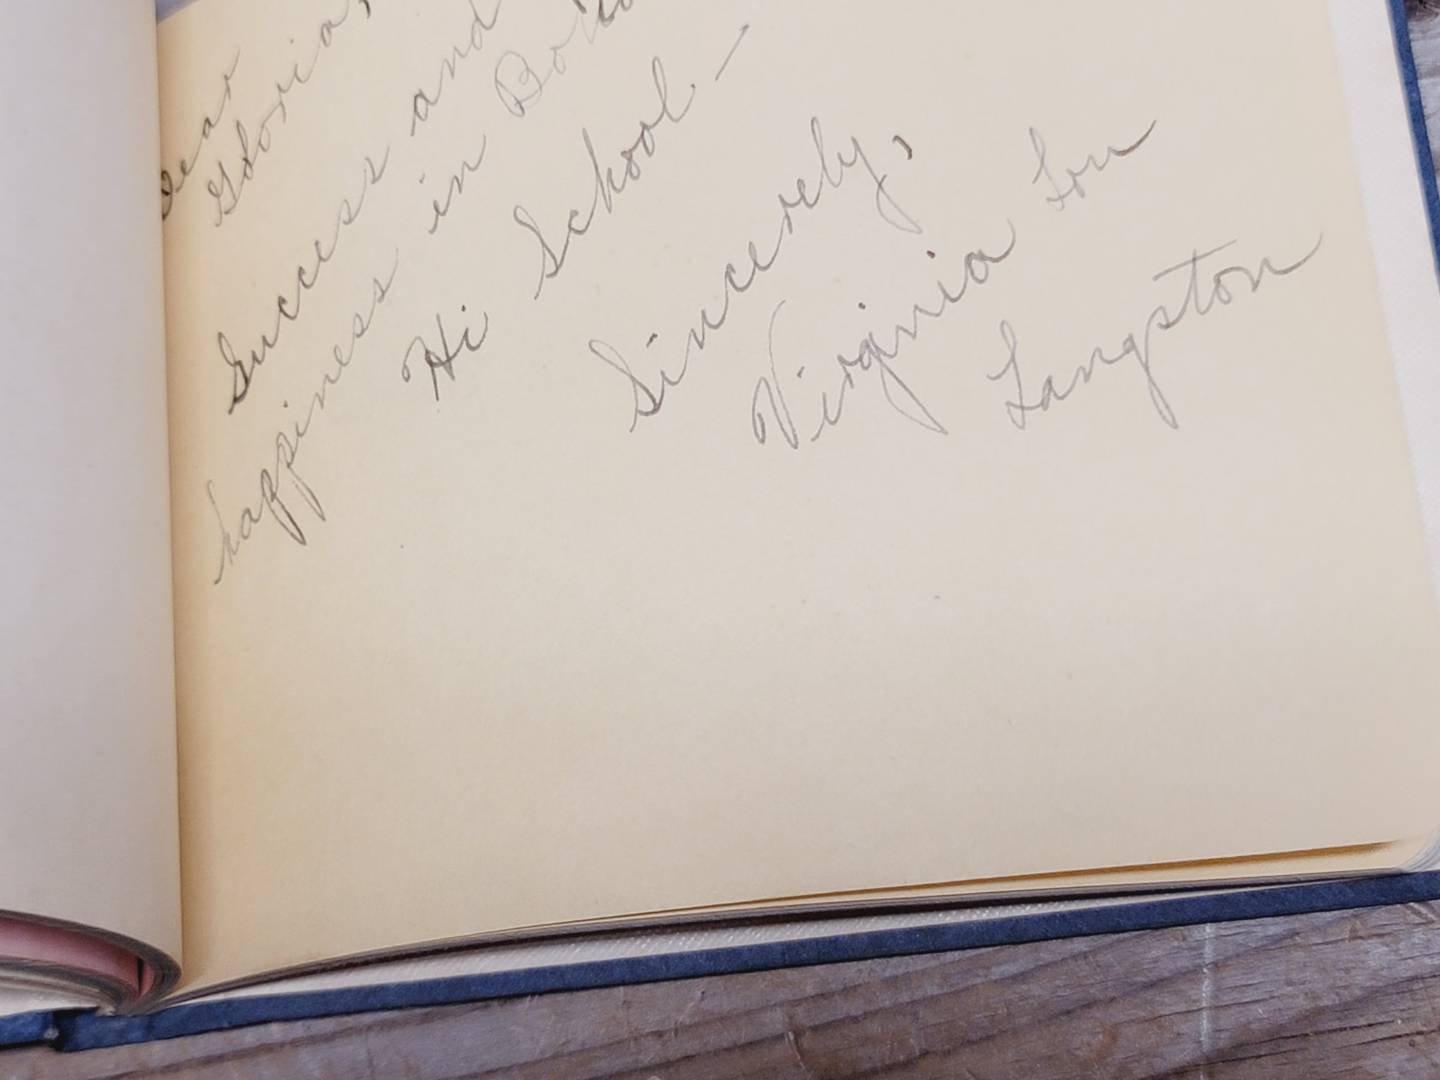 Dear
Gloria,
Success and
happiness in
Hi School —
Sincerely,
Virginia Lou
Langston